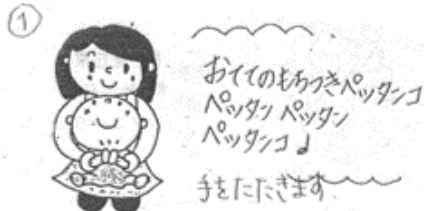 ①
おててのもちつきペッタンコ
ペッタン ペッタン
ペッタンコ♩
手をたたきます